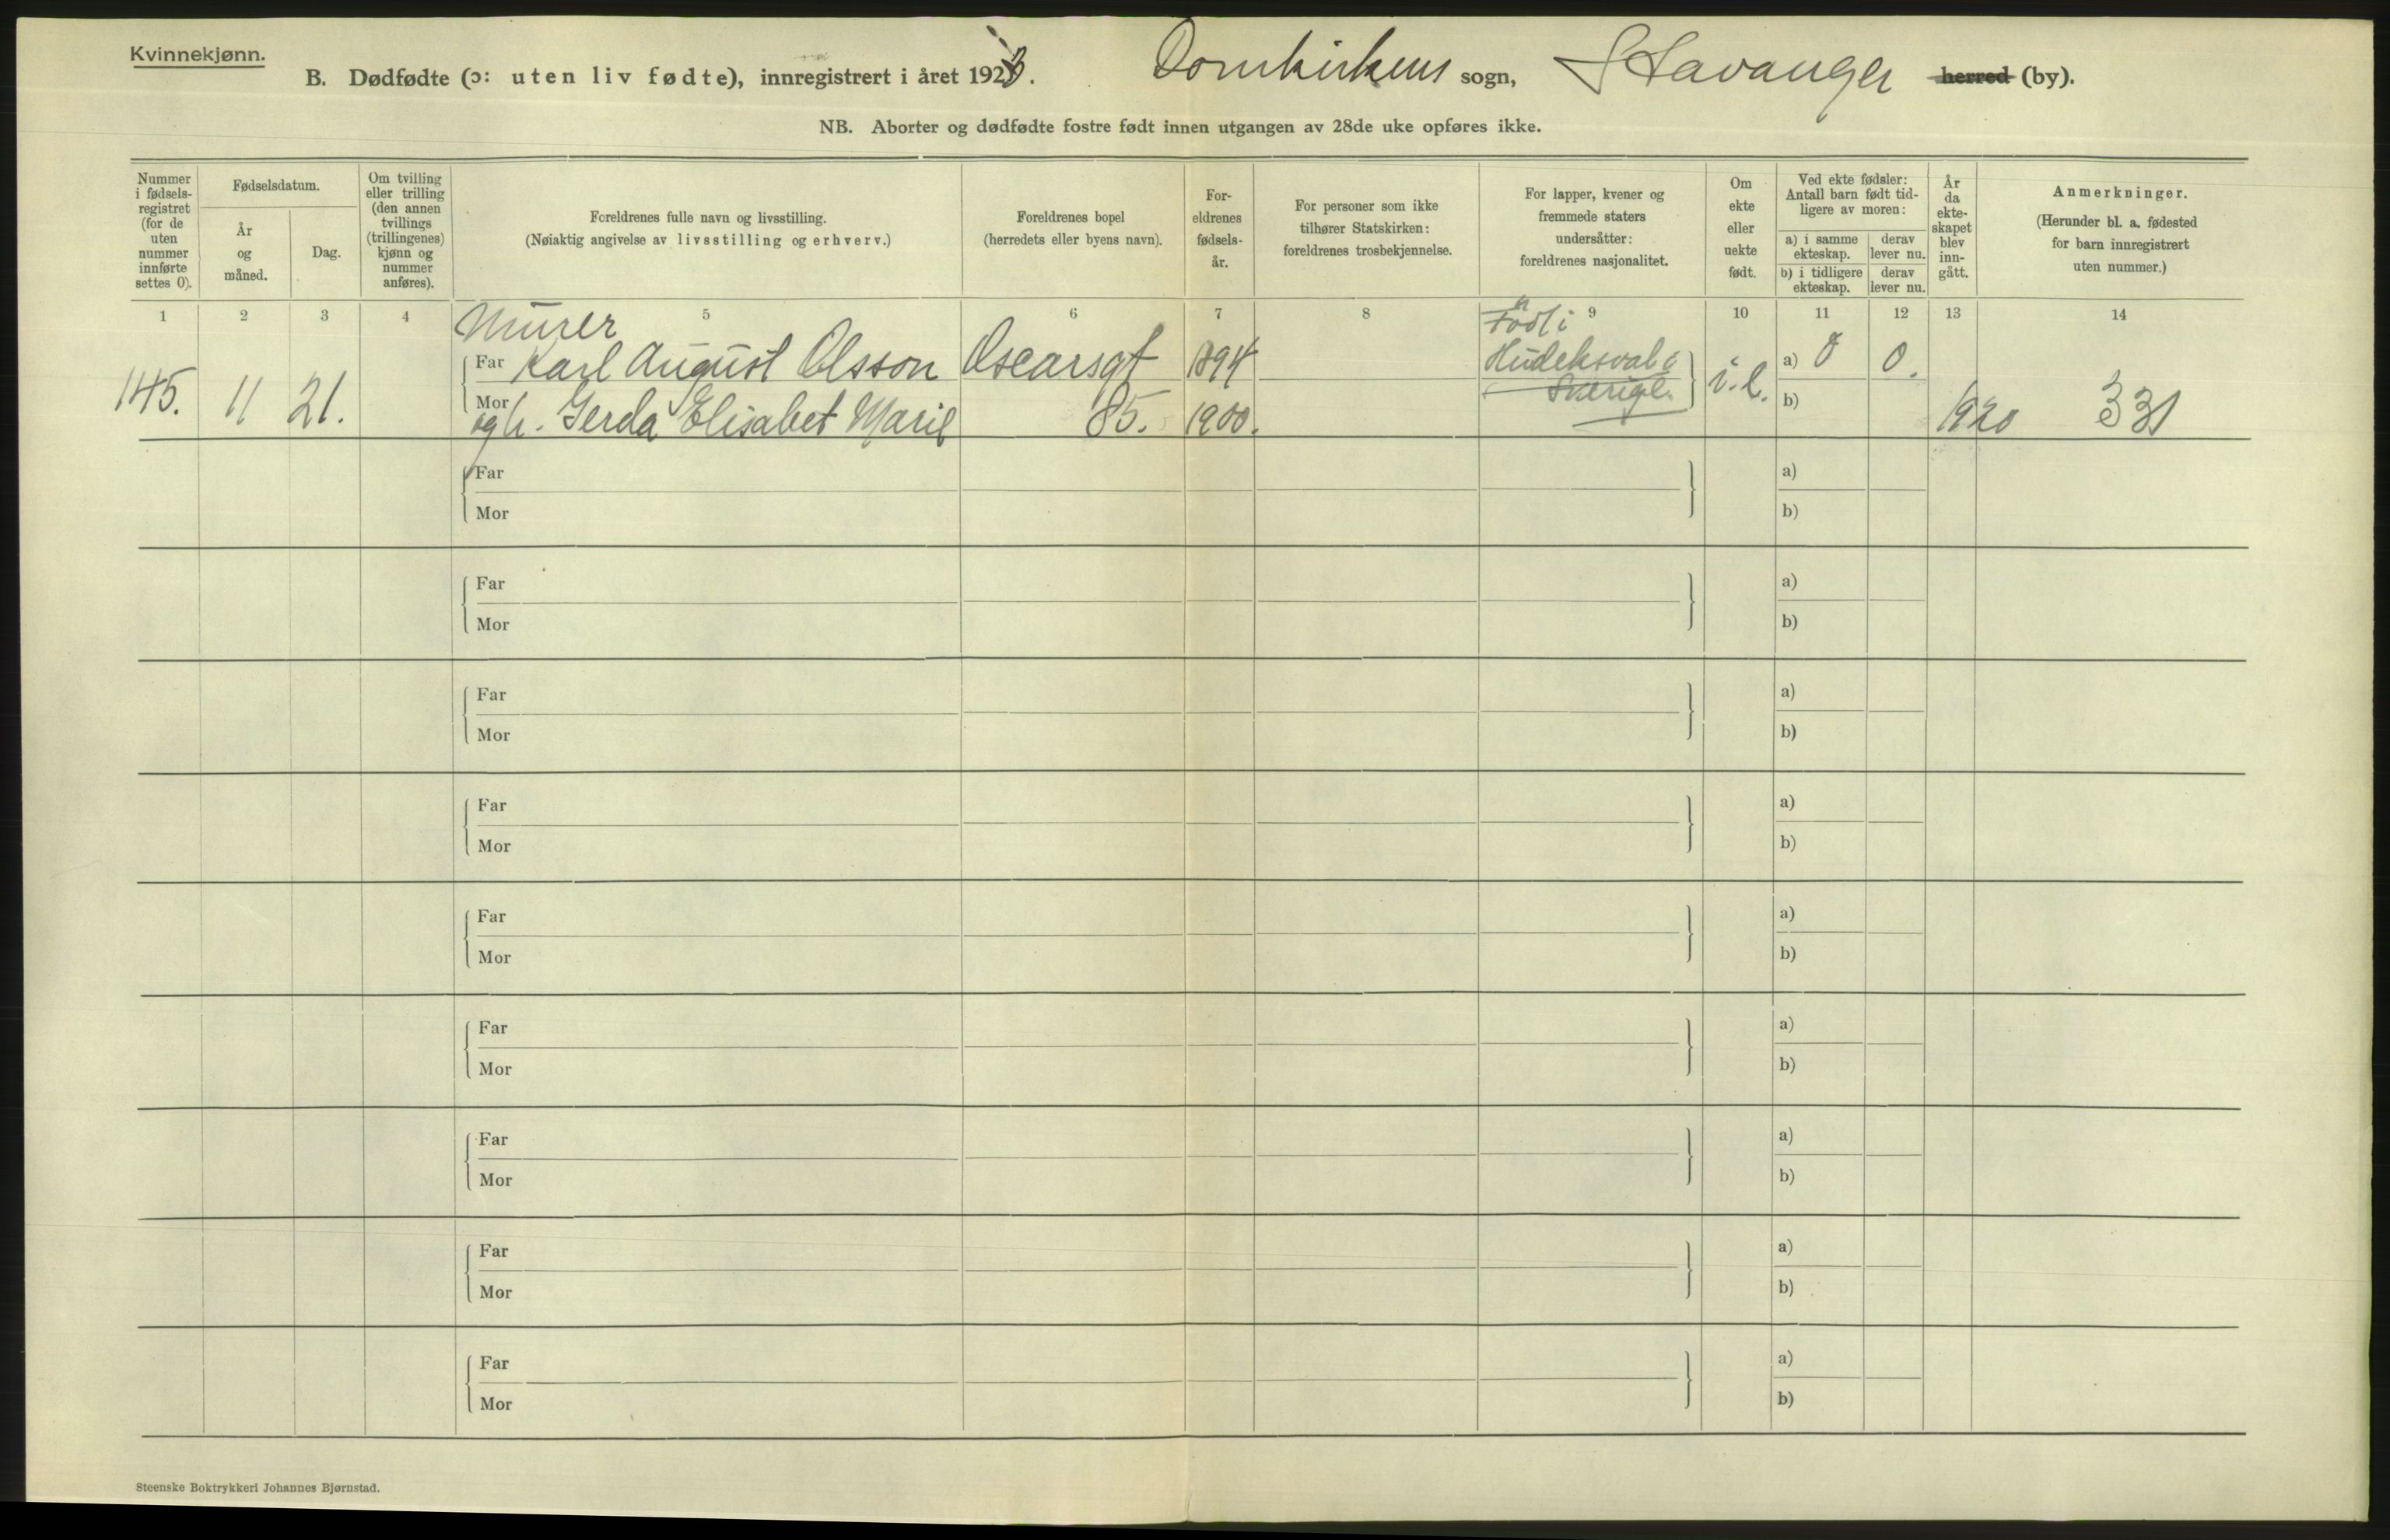 Kvinnekjønn.
B. Dødfødte (ɔ: uten liv fødte), innregistrert i året 1923. Domkirkens sogn, Stavanger herred (by).
NB. Aborter og dødfødte fostre født innen utgangen av 28de uke opføres ikke.
Nummer i fødsels-registret (for de uten nummer innførte settes 0).
Fødselsdatum.
År og måned.
Dag.
Om tvilling eller trilling (den annen tvillings (trillingenes) kjønn og nummer anføres).
Foreldrenes fulle navn og livsstilling.
(Nøiaktig angivelse av livsstilling og erhverv.)
Foreldrenes bopel
(herredets eller byens navn).
For-eldrenes fødsels-år.
For personer som ikke tilhører Statskirken: foreldrenes trosbekjennelse.
For lapper, kvener og fremmede staters undersåtter: foreldrenes nasjonalitet.
Om ekte eller uekte født.
Ved ekte fødsler: Antall barn født tid-ligere av moren:
a) i samme ekteskap.
derav lever nu.
b) i tidligere ekteskap.
derav lever nu.
År da ekte-skapet blev inn-gått.
Anmerkninger.
(Herunder bl. a. fødested for barn innregistrert uten nummer.)
1 2 3 4 5 6 7 8 9 10 11 12 13 14
Murer Født i
Far Karl August Olsson Oscarsgt 1894 Hudeksval i a) 0 0.
145. 11 21. Mor og h. Gerda Elisabet Marie 85. 1900. Sverige. i.e. b) 1920 331
Far a)
Mor b)
Far a)
Mor b)
Far a)
Mor b)
Far a)
Mor b)
Far a)
Mor b)
Far a)
Mor b)
Far a)
Mor b)
Far a)
Mor b)
Far a)
Mor b)
Steenske Boktrykkeri Johannes Bjørnstad.